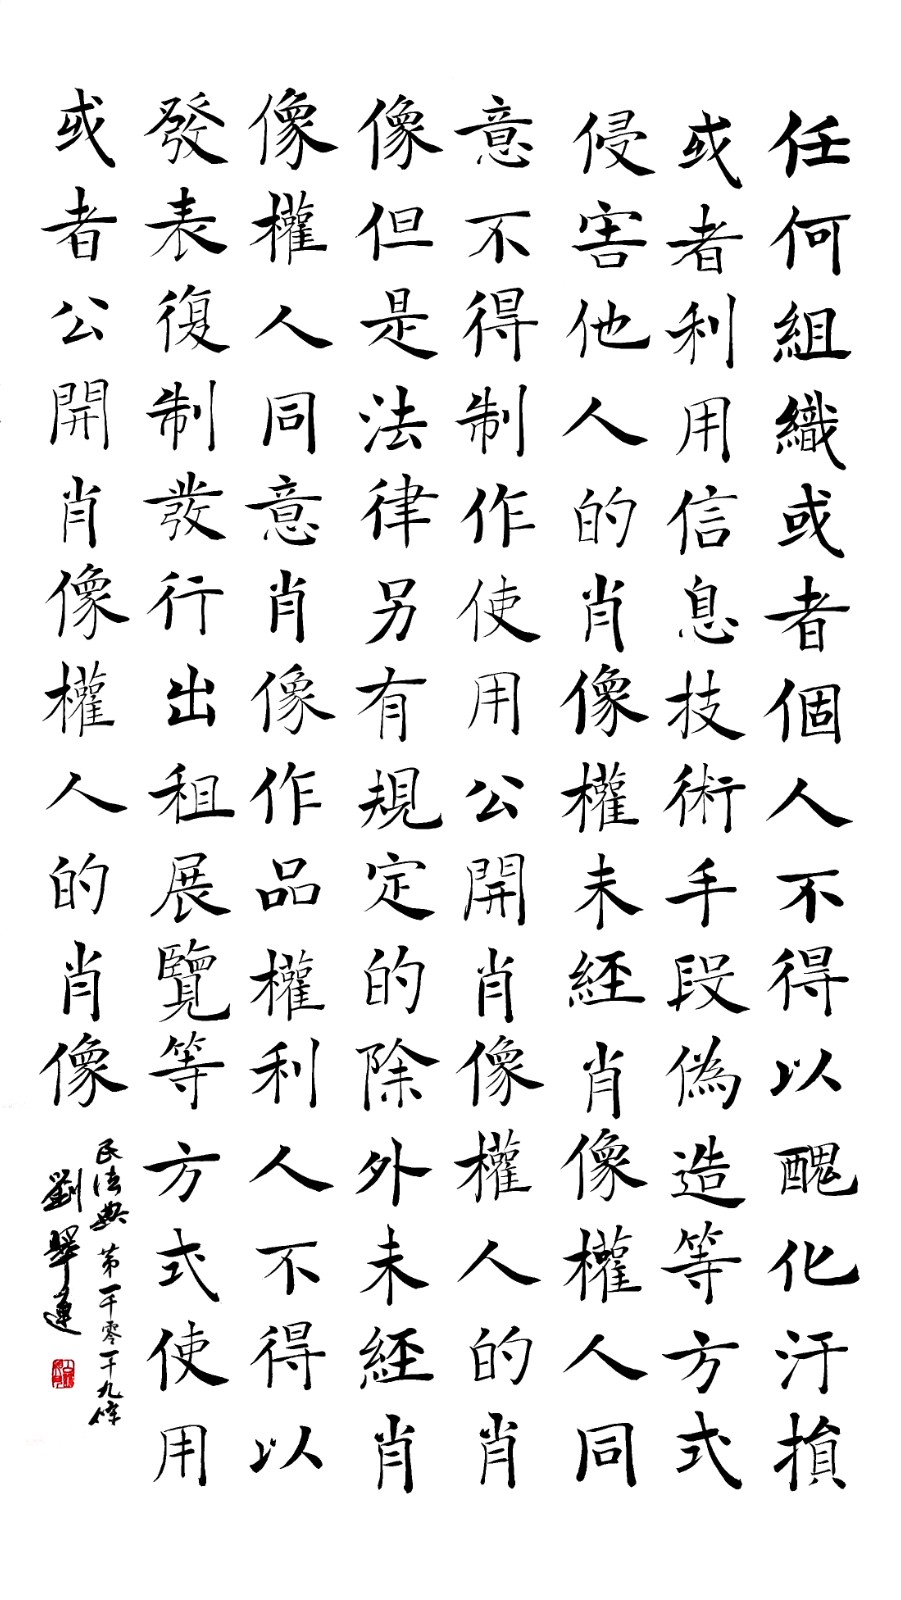 任何組織或者個人不得以醜化汙損
或者利用信息技術手段偽造等方式
侵害他人的肖像權未經肖像權人同
意不得制作使用公開肖像權人的肖
像但是法律另有規定的除外未經肖
像權人同意肖像作品權利人不得以
發表復制發行出租展覽等方式使用
或者公開肖像權人的肖像
民法典第一千零一十九條
劉